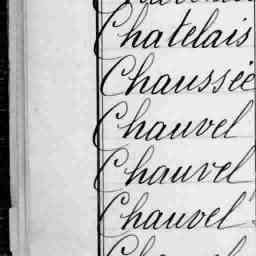 Chatelais
Chaussée
Chauvel
Chauvel
Chauvel